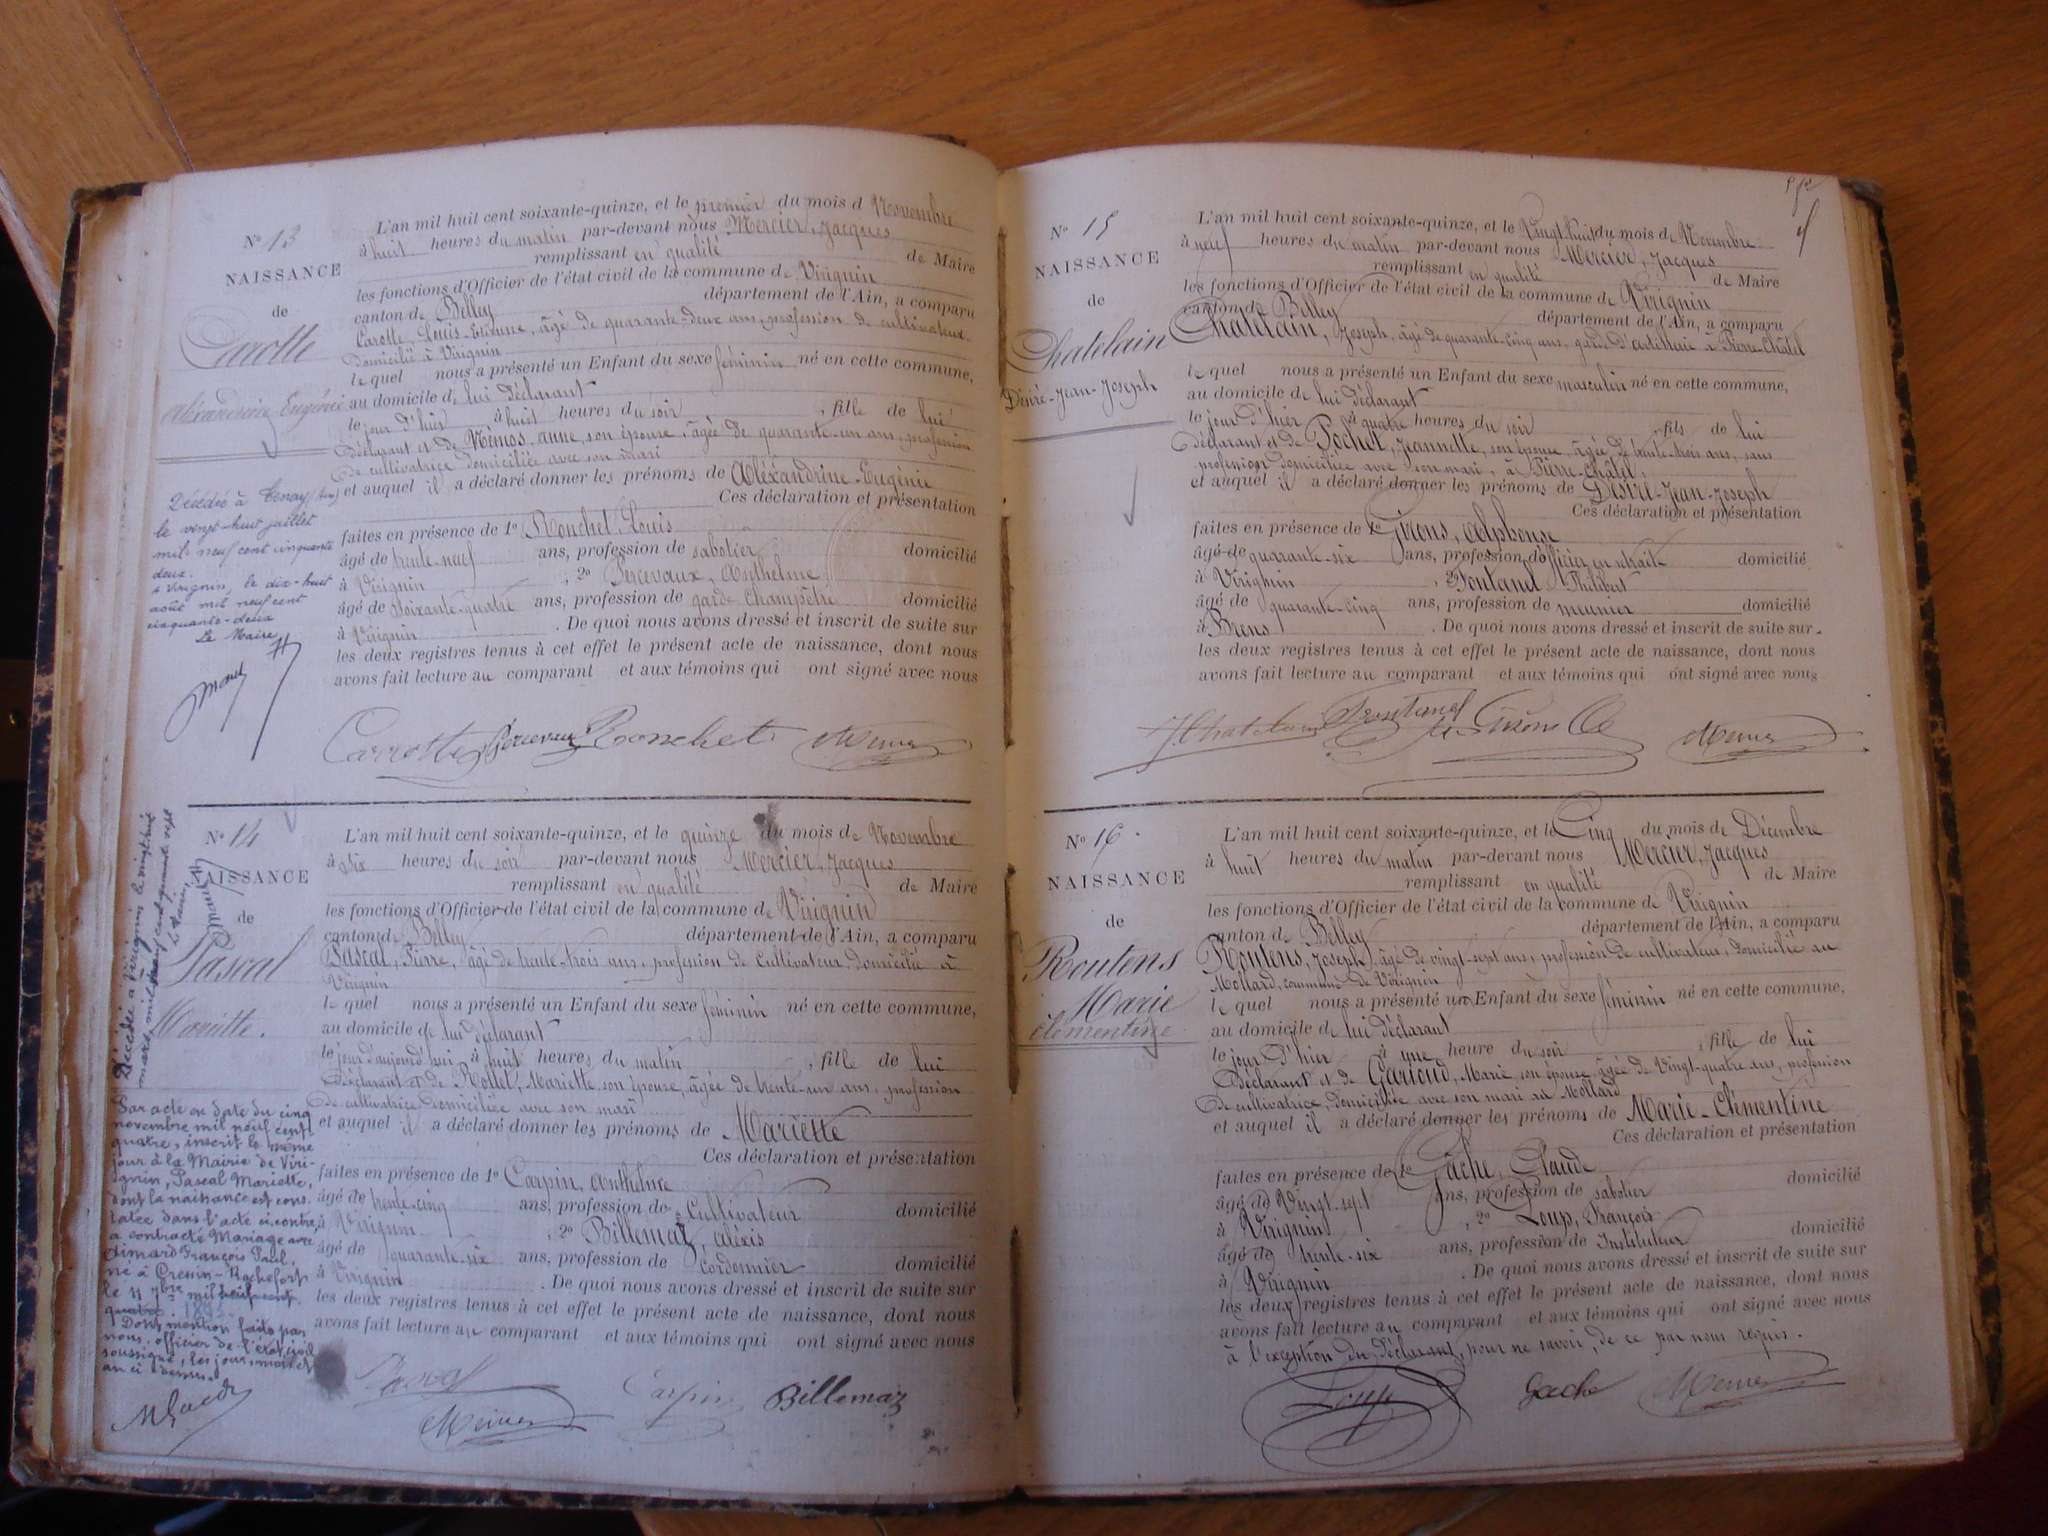 N° 13
NAISSANCE
de
Carotte
Alexandrine Eugénie
Décédée à Tenay (Ain)
le vingt-huit juillet
mil neuf cent cinquante
deux.
à Virignin, le dix-huit
août mil neuf cent
cinquante-deux
Le Maire
L'an mil huit cent soixante-quinze, et le premier du mois d Novembre
à huit heures du matin par-devant nous Mercier, Jacques
remplissant en qualité de Maire
les fonctions d'Officier de l'état civil de la commune de Virignin
canton de Belley département de l'Ain, a comparu
Carotte, Louis-Etienne, âgé de quarante-deux ans, profession de cultivateur
domicilié à Virignin
le quel nous a présenté un Enfant du sexe féminin né en cette commune,
au domicile de lui déclarant
le jour d'hier à huit heures du soir , fille de lui
déclarant et de Némos, anne, son épouse, âgée de quarante-un ans, profession
de cultivatrice domiciliée avec son mari
et auquel il a déclaré donner les prénoms de Aléxandrine-Eugénie
Ces déclaration et présentation
faites en présence de 1° Ronchet, Louis
âgé de trente-neuf ans, profession de sabotier domicilié
à Virignin , 2° Percevaux, Anthelme
âgé de soixante-quatre ans, profession de garde champêtre domicilié
à Virignin . De quoi nous avons dressé et inscrit de suite sur
les deux registres tenus à cet effet le présent acte de naissance, dont nous
avons fait lecture au comparant et aux témoins qui ont signé avec nous
Carrotte Percevaux Ronchet Mercier
N° 14
NAISSANCE
de
Pascal
Mariette.
Décédée à Virignin le vingt huit
mars mil neuf cent cinquante sept
Le Maire,
Par acte en date du cinq
novembre mil neuf cent
quatre, inscrit le même
jour à la Mairie de Viri-
gnin, Pascal Mariette,
dont la naissance est cons-
tatée dans l'acte ci-contre,
a contracté Mariage avec
Aimard François Paul,
né à Cressin-Rochefort
le 11 7bre mil huit cent
Dont mention faite par
nous, officier de l'état civil
soussigné, les jour, mois et
an ci dessus.
L'an mil huit cent soixante-quinze, et le quinze du mois de Novembre
à six heures du soir par-devant nous Mercier, Jacques
remplissant en qualité de Maire
les fonctions d'Officier de l'état civil de la commune de Virignin
canton de Belley département de l'Ain, a comparu
Pascal, Pierre, âgé de trente-trois ans, profession de cultivateur, domicilié à
Virignin
le quel nous a présenté un Enfant du sexe féminin né en cette commune,
au domicile de lui déclarant
le jour d'aujourd'hui à huit heures du matin , fille de lui
déclarant et de Rollet, Mariette son épouse, âgée de trente-un ans, profession
de cultivatrice domiciliée avec son mari
et auquel il a déclaré donner les prénoms de Mariette
Ces déclaration et présentation
faites en présence de 1° Carpin, anthelme
âgé de trente-cinq ans, profession de Cultivateur domicilié
à Virignin , 2° Billemaz, aléxis
âgé de quarante-six ans, profession de cordonnier domicilié
à Virignin . De quoi nous avons dressé et inscrit de suite sur
les deux registres tenus à cet effet le présent acte de naissance, dont nous
avons fait lecture au comparant et aux témoins qui ont signé avec nous
Pascal Carpin Billemaz
Mercier
N° 15
NAISSANCE
de
Chatelain
Désiré-Jean-Joseph
L'an mil huit cent soixante-quinze, et le Vingt huit du mois de Novembre
à neuf heures du matin par-devant nous Mercier, Jacques
remplissant en qualité de Maire
les fonctions d'Officier de l'état civil de la commune de Virignin
canton de Belley département de l'Ain, a comparu
Chatelain, Joseph, âgé de quarante-cinq ans, garde d'artillerie à Pierre-Châtel
le quel nous a présenté un Enfant du sexe masculin né en cette commune,
au domicile de lui déclarant
le jour d'hier à quatre heures du soir , fils de lui
déclarant et de Pochet, Jeannette, son épouse, âgée de trente-trois ans, sans
profession domiciliée avec son mari, à Pierre-Châtel,
et auquel il a déclaré donner les prénoms de Désiré-Jean-Joseph
Ces déclaration et présentation
faites en présence de 1° Girons, Alphonse
âgé de quarante-six ans, profession de officier en retraite domicilié
à Virignin , Fontanel Philibert
âgé de quarante-cinq ans, profession de meunier domicilié
à Brens . De quoi nous avons dressé et inscrit de suite sur
les deux registres tenus à cet effet le présent acte de naissance, dont nous
avons fait lecture au comparant et aux témoins qui ont signé avec nous
J Chatelain Fontanel Mercier
N° 16
NAISSANCE
de
Routens
Marie
Clémentine
L'an mil huit cent soixante-quinze, et le Cinq du mois de Décembre
à huit heures du matin par-devant nous Mercier, Jacques
remplissant en qualité de Maire
les fonctions d'Officier de l'état civil de la commune de Virignin
canton de Belley département de l'Ain, a comparu
Routens, Joseph, âgé de vingt-sept ans, profession de cultivateur, domicilié au
Mollard, commune de Virignin
le quel nous a présenté un Enfant du sexe féminin né en cette commune,
au domicile de lui déclarant
le jour d'hier à une heure du soir , fille de lui
déclarant et de Gariond, Marie, son épouse, âgée de Vingt-quatre ans, profession
de cultivatrice, domiciliée avec son mari au Mollard
et auquel il a déclaré donner les prénoms de Marie-Clémentine
Ces déclaration et présentation
faites en présence de 1° Gache, Claude
âgé de Vingt-sept ans, profession de sabotier domicilié
à Virignin , 2° Loup, François
âgé de trente-six ans, profession de Instituteur domicilié
à Virignin . De quoi nous avons dressé et inscrit de suite sur
les deux registres tenus à cet effet le présent acte de naissance, dont nous
avons fait lecture au comparant et aux témoins qui ont signé avec nous
à l'exception du déclarant, pour ne savoir, de ce par nous requis.
Loup Gache Mercier